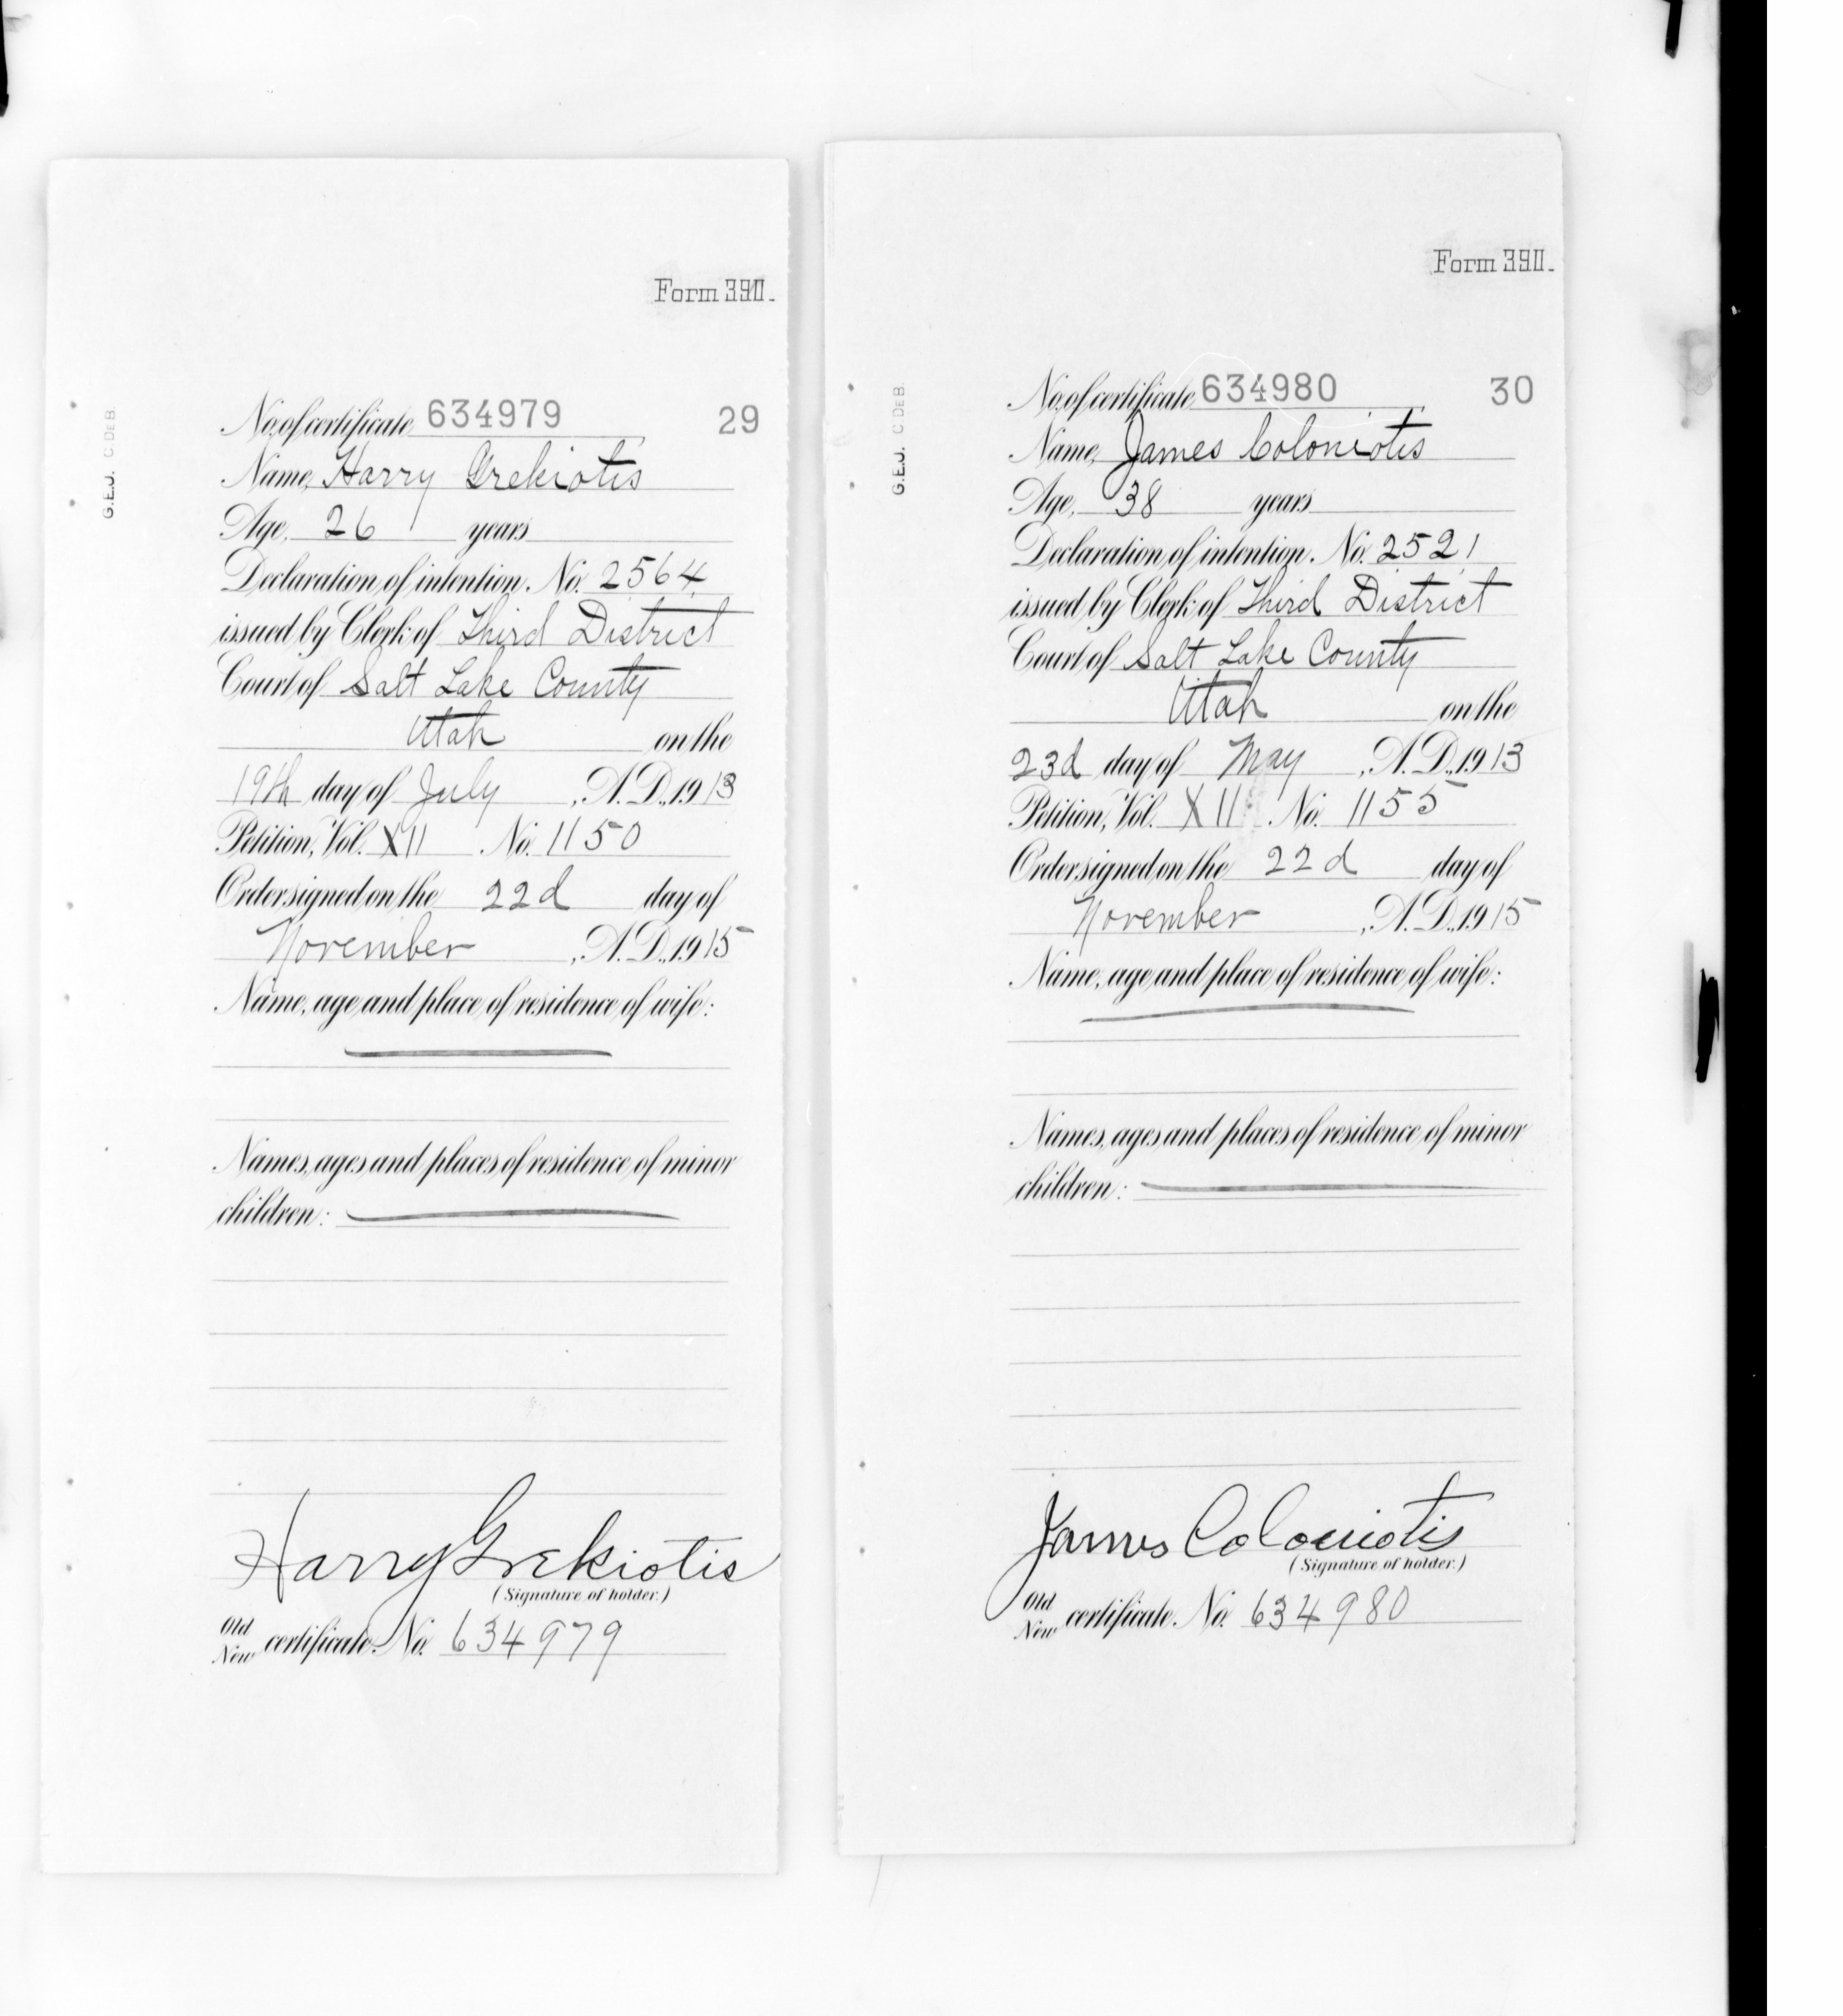 Form 390.
G.E.J. C DE B.
No. of certificate, 634979 29
Name, Harry Grekiotis
Age, 26 years
Declaration of intention, No. 2564
issued by Clerk of Third District
Court of Salt Lake County
Utah on the
19th day of July, A.D., 1913
Petition, Vol. XII No. 1150
Order signed on the 22d day of
November, A.D., 1915
Name, age and place of residence of wife:
Names, ages and places of residence of minor
children:
Harry Grekiotis
(Signature of holder.)
Old
New certificate, No. 634979
Form 390.
G.E.J. C DE B.
No. of certificate, 634980 30
Name, James Coloniotis
Age, 38 years
Declaration of intention, No. 2521
issued by Clerk of Third District
Court of Salt Lake County
Utah on the
23d day of May, A.D., 1913
Petition, Vol. XII No. 1155
Order signed on the 22d day of
November, A.D., 1915
Name, age and place of residence of wife:
Names, ages and places of residence of minor
children:
James Coloniotis
(Signature of holder.)
Old
New certificate, No. 634980